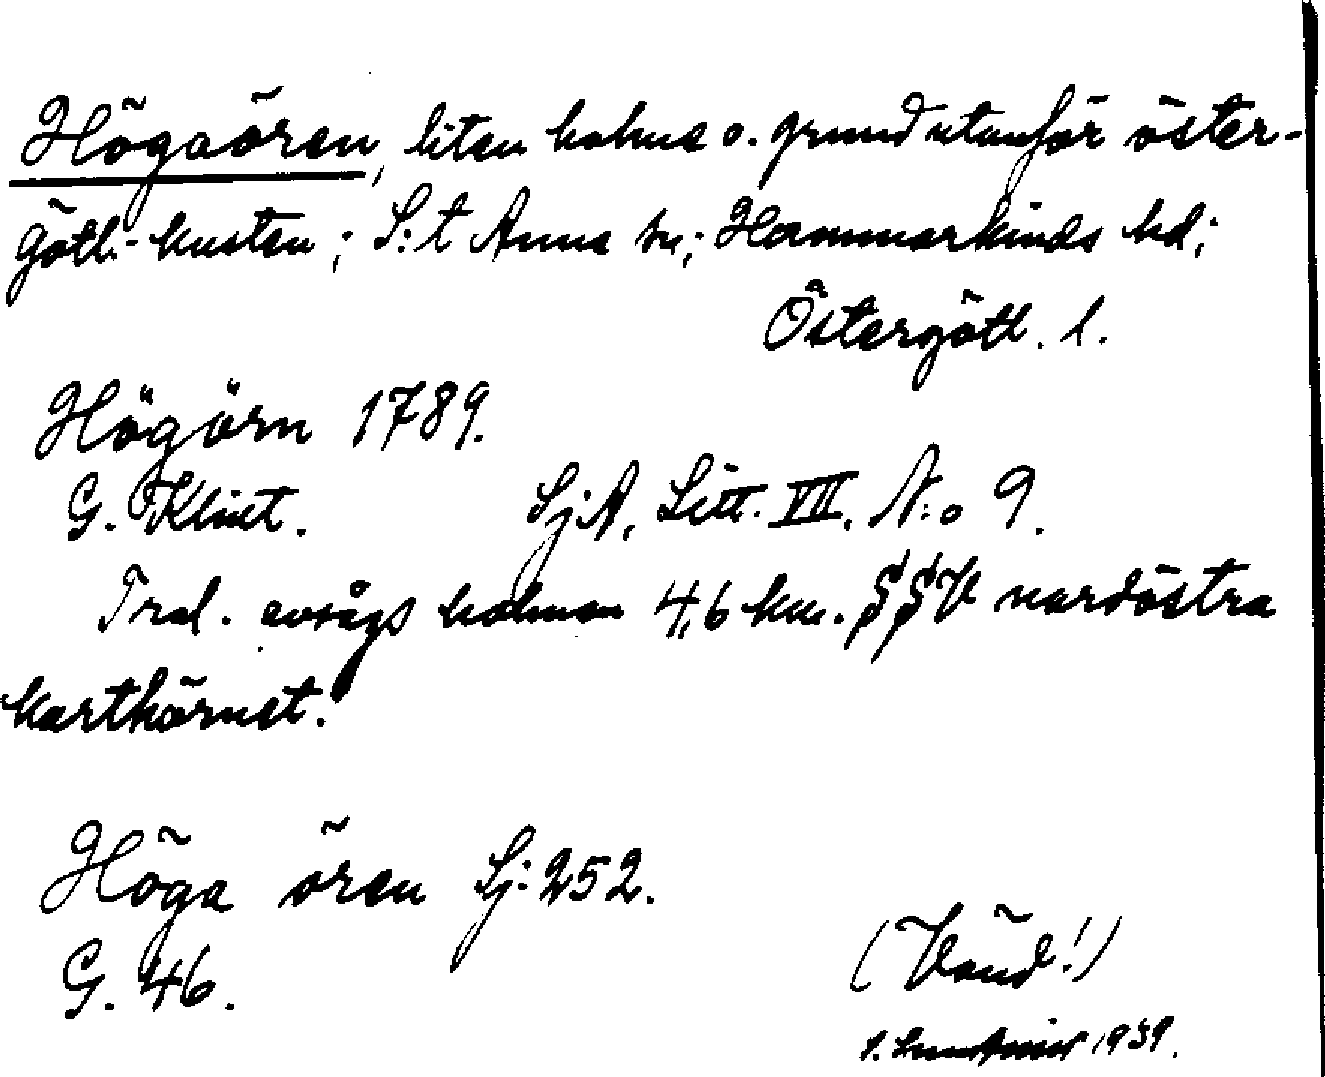 Högaören, liten holme o. grund utanför öster-
götl.-kusten; S:t Anna sn; Hammarkinds hd;
Östergötl. l.
Högörn 1789.
G. Klint. Sj.A. Litt. VII. N:o 9.
Trol. avsågs holmen 4,6 km. SSV nordöstra
karthörnet.
Höga ören Sj. 252.
G. 46.
(Vänd!)
1939.